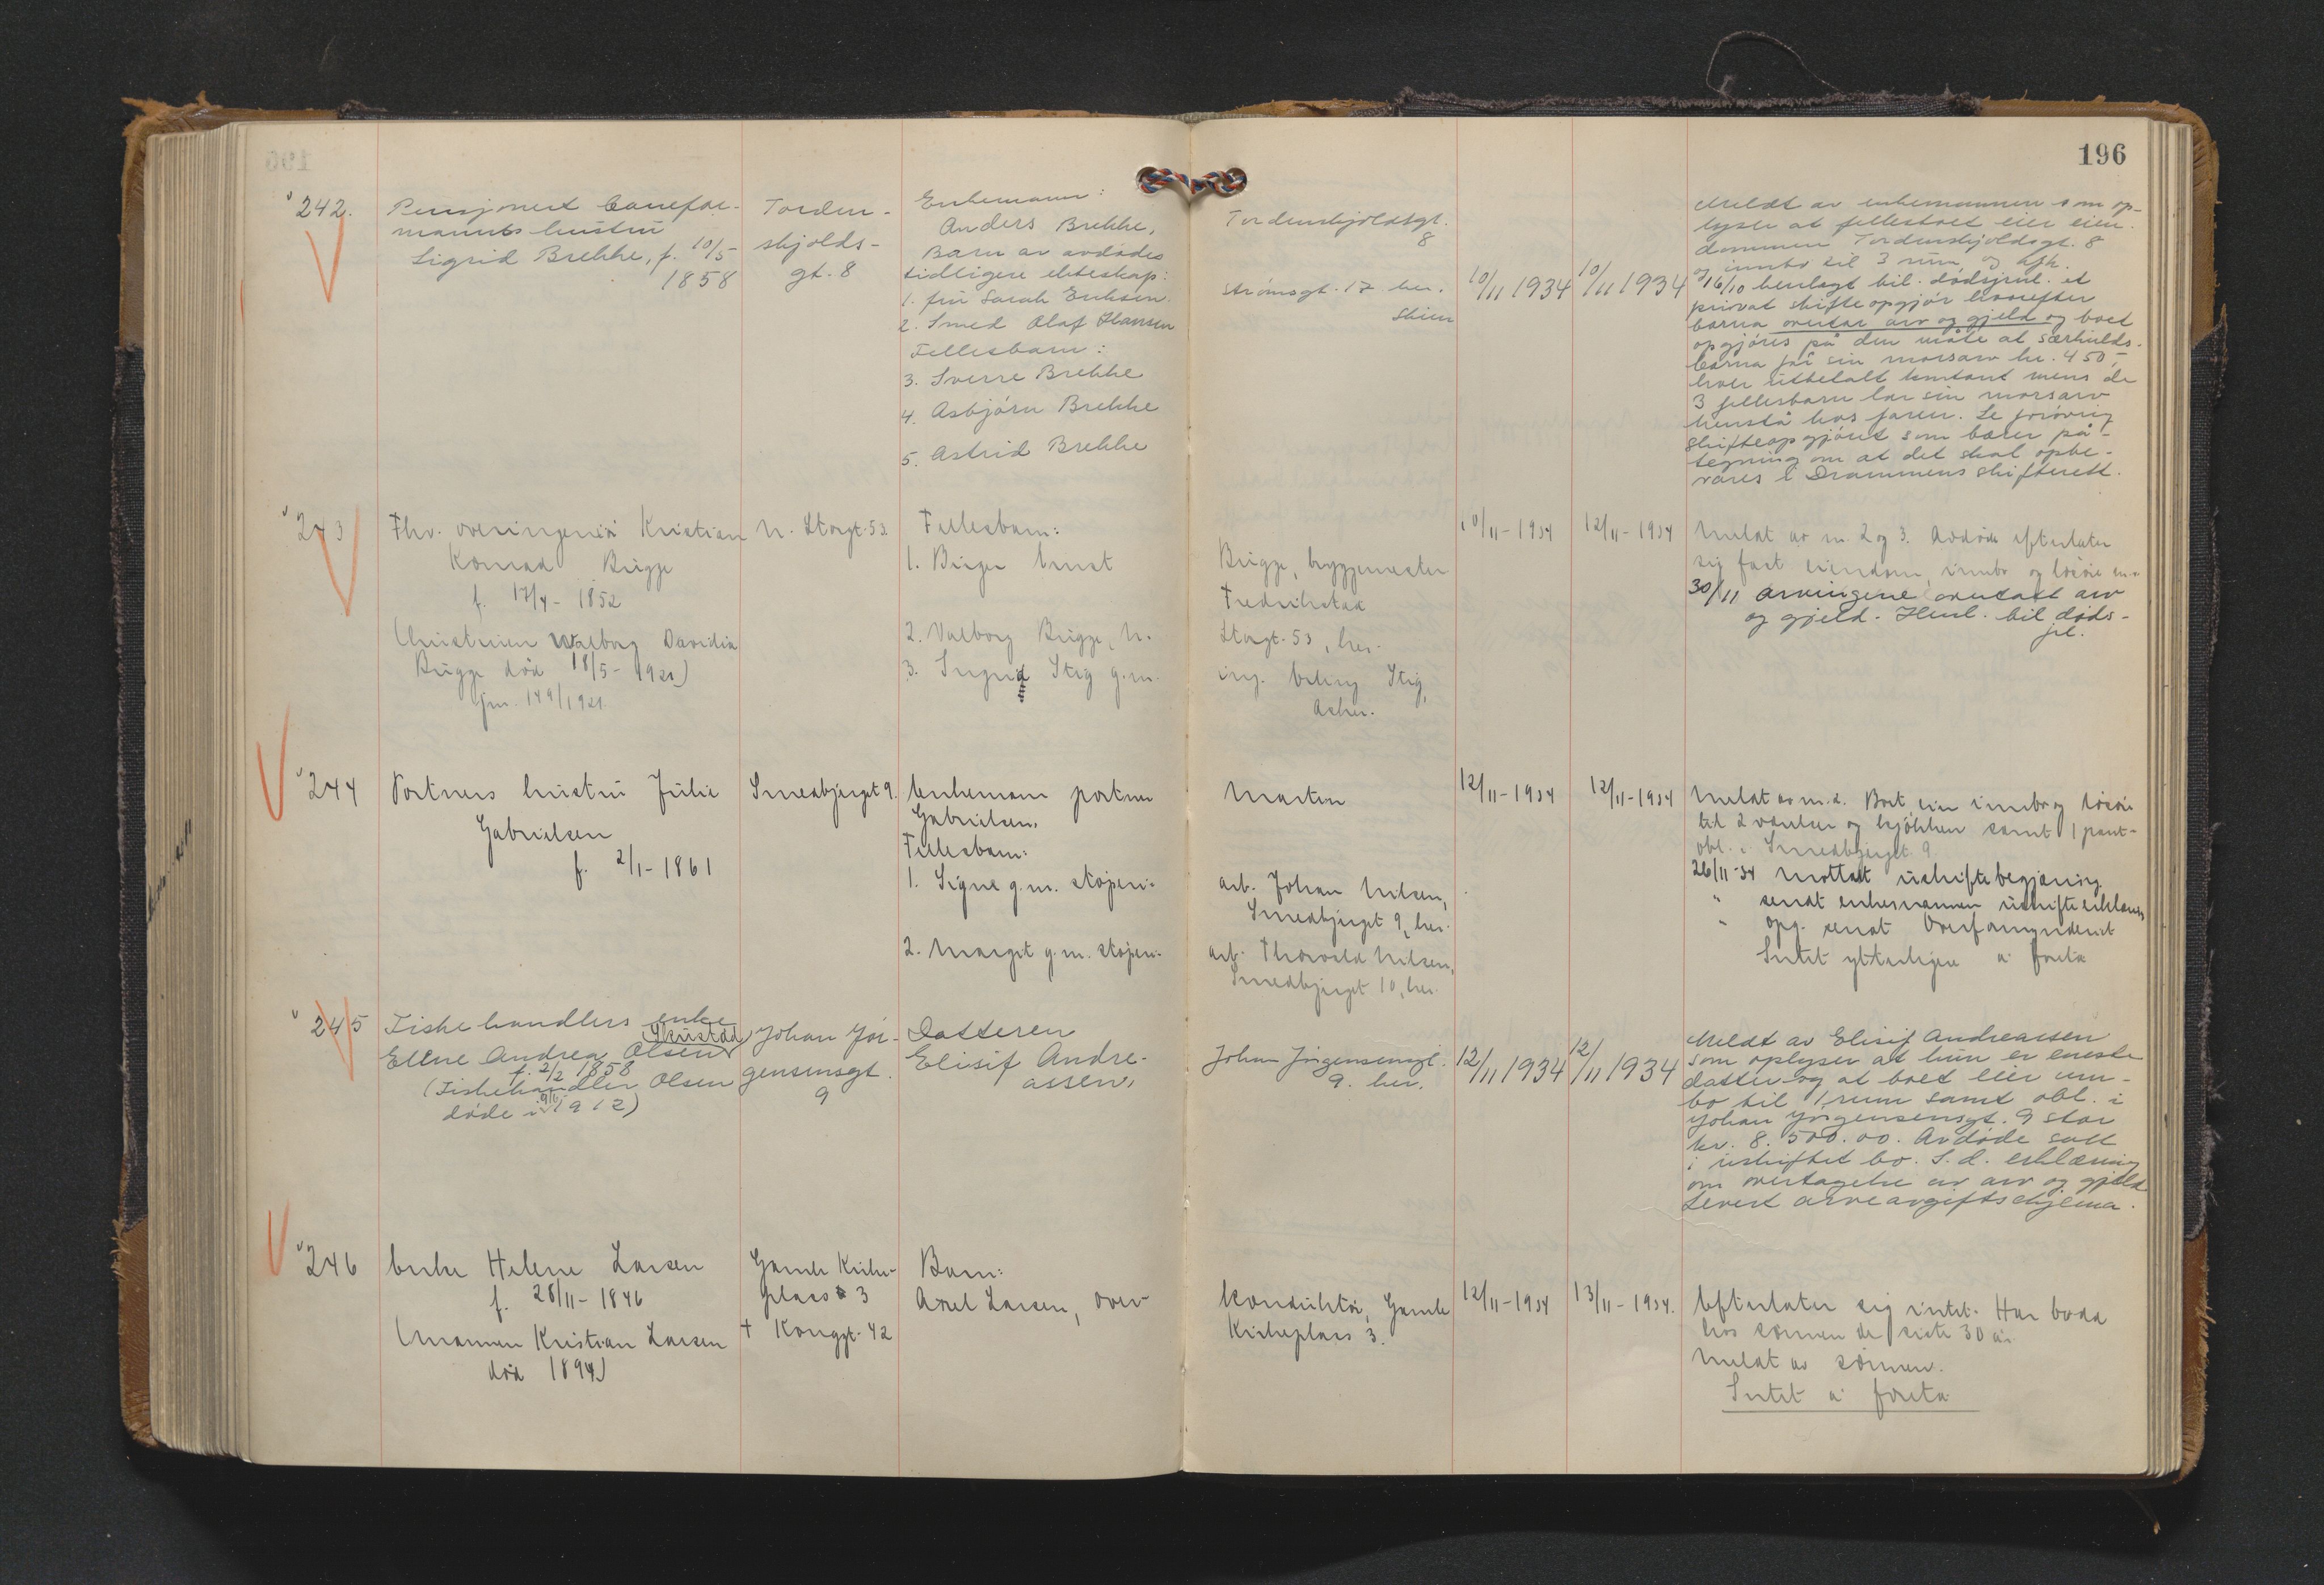 196
242.
Pensjonert banefor-
manns hustru
Sigrid Brekke, f. 10/5-
1858
Torden-
skjolds-
gt. 8
Enkemann:
Anders Brekke,
Barn av avdødes
tidligere ekteskap:
1. fru Sarah Eriksen
2. Smed Olaf Hansen
Fellesbarn:
3. Sverre Brekke
4. Asbjørn Brekke
5. Astrid Brekke
Tordenskjoldsgt.
8
Strømsgt. 17 her.
Skien
10/11 1934
10/11 1934
Meldt av enkemannen som op-
lyser at fellesboet eier eien-
dommen Tordenskjoldsgt. 8
og innbo til 3 rum og kjk.
16/10 henlagt bil. dødsjrnl. et
privat skifteopgjør hvorefter
barna overtar arv og gjeld og boet
opgjøres på den måte at særkulds-
barna får sin morsarv kr. 450,-
hver utbetalt kontant mens de
3 fellesbarn lar sin morsarv
henstå hos faren. Se forøvrig
skifteopgjøret som bærer på-
tegning om at det skal opbe-
vares i Drammens skifterett.
243
Fhv. overingeniør Kristian
Konrad Brigge
f. 17/4- 1852
(Hustruen Walborg Davidia
Brigge død 18/5- 1921)
jrn. 149/1921
N. Storgt. 53
Fellesbarn:
1. Birger Ernst
2. Valborg Brigge, N.
3. Ingrid Stig g.m.
Brigge, bryggemester
Fredrikstad
Storgt. 53, her.
ing. Erling Stig,
Asker.
10/11-1934
12/11-1934
Meldt av nr. 2 og 3. Avdøde efterlater
sig fast eiendom, innbo og løsøre m.v.
30/11 Arvingene overtatt arv
og gjeld. Henl. bil døds-
jrl.
244
Portners hustru Julie
Gabrielsen
f. 2/1-1861
Smedbjerget 9.
Enkemann portner
Gabrielsen.
Fellesbarn:
1. Signe g.m. støperi-
2. Margit g.m. støperi-
Martin
arb. Johan Nilsen,
Smedbjerget 9, her.
arb. Thorvald Nilsen,
Smedbjerget 10, her.
12/11-1934
12/11-1934
Meldt av nr. 2. Boet eier innbo og løsøre
til 2 værelser og kjøkken samt 1 pant-
obl. i Smedbjerget 9
26/11-34 Mottatt uskiftebegjæring
" sendt enkemannen uskifteerklæring
" opg. sendt Overformynderiet
Intet ytterligere å foreta
245
Fiskehandlers enke
Skustad
Elene Andrea Olsen
f. 2/2 1858
(Fiskehandler Olsen
døde i 1912)
Johan Jør-
gensensgt.
9
Datteren
Elisif Andre-
assen,
Johan Jørgensensgt.
9. her.
12/11 1934
12/11 1934
Meldt av Elisif Andreassen
som oplyser at hun er eneste
datter og at boet eier inn-
bo til 1 rum samt obl. i
Johan Jørgensensgt. 9 stor
kr. 8.500.00. Avdøde satt
i uskiftet bo. S.d. erklæring
om overtagelse av arv og gjeld
Levert arveavgiftsskjema.
246
Enke Helene Larsen
f. 28/11-1846
(Mannen Kristian Larsen
død 1894)
Gamle Kirke-
plass 3
† Konggt. 42
Barn:
Axel Larsen, over-
konduktør, Gamle
Kirkeplass 3.
12/11-1934
13/11-1934.
Efterlater sig intet. Har bodd
hos sønnen de siste 30 år
Meldt av sønnen.
Intet å foreta